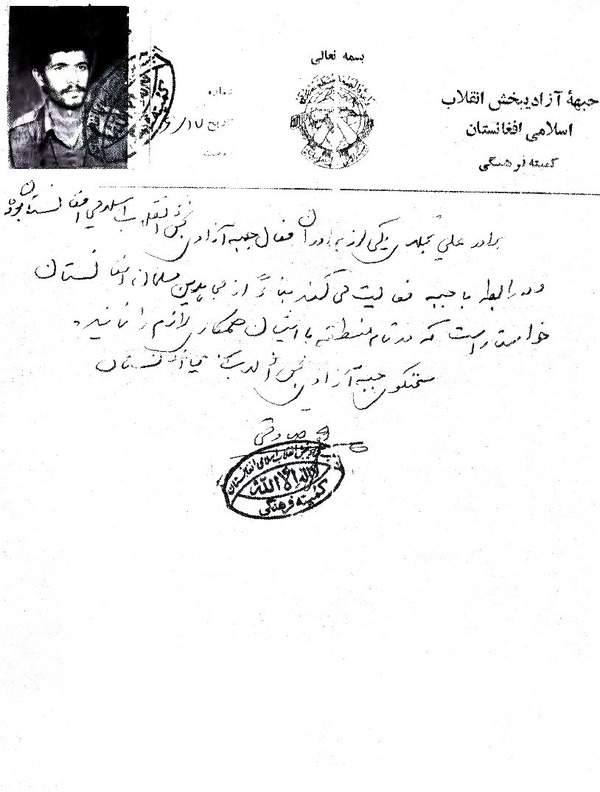 بسمه تعالی
جبههٔ آزادیبخش انقلاب
اسلامی افغانستان
کمیته فرهنگی
شماره
تاریخ ۱۷/
برادر علی یکی از برادران فعال جبهه آزادی بخش انقلاب اسلامی افغانستان بوده
ودر رابطه با جبهه فعالیت می کند بناءً از مجاهدین مسلمان افغانستان
خواستار است که در تمام منطقه با ایشان همکاری لازم را نمایند.
سخنگوی جبهه آزادی بخش افغانستان
صادقی
آزادیبخش انقلاب اسلامی افغانستان
لا اله الا الله
کمیته فرهنگی